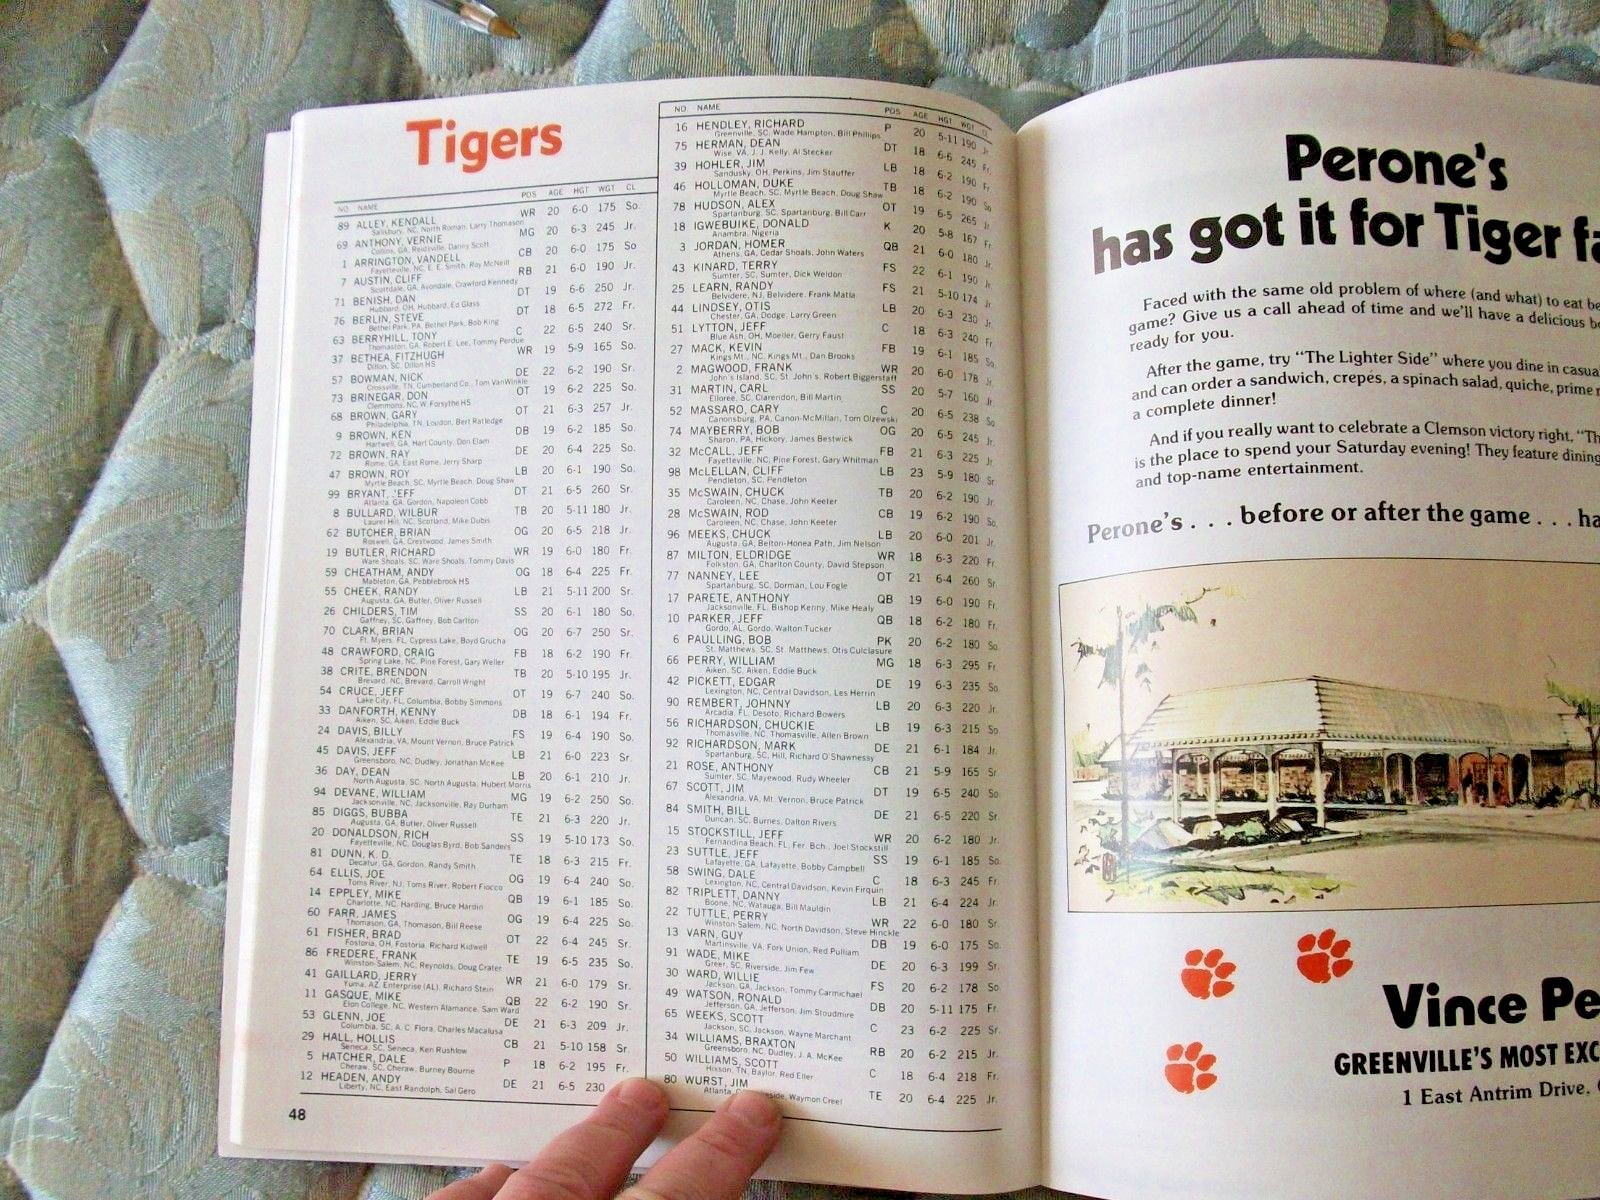 Tigers
NO. NAME POS AGE HGT WGT CL
89 ALLEY, KENDALL WR 20 6-0 175 So.
Salisbury, NC, North Rowan, Larry Thomason
69 ANTHONY, VERNIE MG 20 6-3 245 Jr.
Collins, GA, Reidsville, Danny Scott
1 ARRINGTON, VANDELL CB 20 6-0 175 So
Fayetteville, NC, E. E. Smith, Ray McNeill
7 AUSTIN, CLIFF RB 21 6-0 190 Jr.
Scottdale, GA, Avondale, Crawford Kennedy
71 BENISH, DAN DT 19 6-6 250 Jr.
Hubbard, OH, Hubbard, Ed Glass
76 BERLIN, STEVE DT 18 6-5 272 Fr.
Bethel Park, PA, Bethel Park, Bob King
63 BERRYHILL, TONY C 22 6-5 240 Sr.
Thomaston, GA, Robert E. Lee, Tommy Perdue
37 BETHEA, FITZHUGH WR 19 5-9 165 So.
Dillon, SC, Dillon HS
57 BOWMAN, NICK DE 22 6-2 190 Sr.
Crossville, TN, Cumberland Co., Tom VanWinkle
73 BRINEGAR, DON OT 19 6-2 225 So.
Clemmons, NC, W. Forsythe HS
68 BROWN, GARY OT 21 6-3 257 Jr.
Philadelphia, TN, Loudon, Bert Ratledge
9 BROWN, KEN DB 19 6-2 185 So.
Hartwell, GA, Hart County, Don Elam
72 BROWN, RAY DE 20 6-4 225 So.
Rome, GA, East Rome, Jerry Sharp
47 BROWN, ROY LB 20 6-1 190 So.
Myrtle Beach, SC, Myrtle Beach, Doug Shaw
99 BRYANT, JEFF DT 21 6-5 260 Sr.
Atlanta, GA, Gordon, Napoleon Cobb
8 BULLARD, WILBUR TB 20 5-11 180 Jr.
Laurel Hill, NC, Scotland, Mike Dubis
62 BUTCHER, BRIAN OG 20 6-5 218 Jr.
Roswell, GA, Crestwood, James Smith
19 BUTLER, RICHARD WR 19 6-0 180 Fr.
Ware Shoals, SC, Ware Shoals, Tommy Davis
59 CHEATHAM, ANDY OG 18 6-4 225 Fr.
Mableton, GA, Pebblebrook HS
55 CHEEK, RANDY LB 21 5-11 200 Sr.
Augusta, GA, Butler, Oliver Russell
26 CHILDERS, TIM SS 20 6-1 180 So.
Gaffney, SC, Gaffney, Bob Carlton
70 CLARK, BRIAN OG 20 6-7 250 Sr.
Ft. Myers, FL, Cypress Lake, Boyd Grucha
48 CRAWFORD, CRAIG FB 18 6-2 190 Fr.
Spring Lake, NC, Pine Forest, Gary Weller
38 CRITE, BRENDON TB 20 5-10 195 Jr.
Brevard, NC, Brevard, Carroll Wright
54 CRUCE, JEFF OT 19 6-7 240 So.
Lake City, FL, Columbia, Bobby Simmons
33 DANFORTH, KENNY DB 18 6-1 194 Fr.
Aiken, SC, Aiken, Eddie Buck
24 DAVIS, BILLY FS 19 6-4 190 So.
Alexandria, VA, Mount Vernon, Bruce Patrick
45 DAVIS, JEFF LB 21 6-0 223 Sr.
Greensboro, NC, Dudley, Jonathan McKee
36 DAY, DEAN LB 20 6-1 210 Jr.
North Augusta, SC, North Augusta, Hubert Morris
94 DEVANE, WILLIAM MG 19 6-2 250 So.
Jacksonville, NC, Jacksonville, Ray Durham
85 DIGGS, BUBBA TE 21 6-3 220 Jr.
Augusta, GA, Butler, Oliver Russell
20 DONALDSON, RICH SS 19 5-10 173 So.
Fayetteville, NC, Douglas Byrd, Bob Sanders
81 DUNN, K. D. TE 18 6-3 215 Fr.
Decatur, GA, Gordon, Randy Smith
64 ELLIS, JOE OG 19 6-4 240 So.
Toms River, NJ, Toms River, Robert Fiocco
14 EPPLEY, MIKE QB 19 6-1 185 So.
Charlotte, NC, Harding, Bruce Hardin
60 FARR, JAMES OG 19 6-4 225 So.
Thomason, GA, Thomason, Bill Reese
61 FISHER, BRAD OT 22 6-4 245 Sr.
Fostoria, OH, Fostoria, Richard Kidwell
86 FREDERE, FRANK TE 19 6-5 235 So.
Winston-Salem, NC, Reynolds, Doug Crater
41 GAILLARD, JERRY WR 21 6-0 179 Sr.
Yuma, AZ, Enterprise (AL), Richard Stein
11 GASQUE, MIKE QB 22 6-2 190 Sr.
Elon College, NC, Western Alamance, Sam Ward
53 GLENN, JOE DE 21 6-3 209 Jr.
Columbia, SC, A. C. Flora, Charles Macalusa
29 HALL, HOLLIS CB 21 5-10 158 Sr.
Seneca, SC, Seneca, Ken Rushlow
5 HATCHER, DALE P 18 6-2 195 Fr.
Cheraw, SC, Cheraw, Burney Bourne
12 HEADEN, ANDY DE 21 6-5 230
Liberty, NC, East Randolph, Sal Gero
48
NO. NAME POS AGE HGT WGT CL
16 HENDLEY, RICHARD P 20 5-11 190 Jr.
Greenville, SC, Wade Hampton, Bill Phillips
75 HERMAN, DEAN DT 18 6-6 245 Fr.
Wise, VA, J. J. Kelly, Al Stecker
39 HOHLER, JIM LB 18 6-2 190 Fr.
Sandusky, OH, Perkins, Jim Stauffer
46 HOLLOMAN, DUKE TB 18 6-2 190 So
Myrtle Beach, SC, Myrtle Beach, Doug Shaw
78 HUDSON, ALEX OT 19 6-5 265 Jr.
Spartanburg, SC, Spartanburg, Bill Carr
18 IGWEBUIKE, DONALD K 20 5-8 167 Fr.
Anambra, Nigeria
3 JORDAN, HOMER QB 21 6-0 180 Jr.
Athens, GA, Cedar Shoals, John Waters
43 KINARD, TERRY FS 22 6-1 190 Jr.
Sumter, SC, Sumter, Dick Weldon
25 LEARN, RANDY FS 21 5-10 174 Jr.
Belvidere, NJ, Belvidere, Frank Matla
44 LINDSEY, OTIS LB 20 6-3 230 Jr.
Chester, GA, Dodge, Larry Green
51 LYTTON, JEFF C 18 6-3 240 Fr.
Blue Ash, OH, Moeller, Gerry Faust
27 MACK, KEVIN FB 19 6-1 185 So.
Kings Mt., NC, Kings Mt., Dan Brooks
2 MAGWOOD, FRANK WR 20 6-0 178 Jr.
John's Island, SC, St. John's, Robert Biggerstaff
31 MARTIN, CARL SS 20 5-7 160 Jr.
Elloree, SC, Clarendon, Bill Martin
52 MASSARO, CARY C 20 6-5 238 So
Canonsburg, PA, Canon-McMillan, Tom Olzewski
74 MAYBERRY, BOB OG 20 6-5 245 Jr.
Sharon, PA, Hickory, James Bestwick
32 McCALL, JEFF FB 21 6-3 225 Jr
Fayetteville, NC, Pine Forest, Gary Whitman
98 McLELLAN, CLIFF LB 23 5-9 180 Sr
Pendleton, SC, Pendleton
35 McSWAIN, CHUCK TB 20 6-2 190 Jr.
Caroleen, NC, Chase, John Keeter
28 McSWAIN, ROD CB 19 6-2 190 So.
Caroleen, NC, Chase, John Keeter
96 MEEKS, CHUCK LB 20 6-0 201 Jr.
Augusta, GA, Belton-Honea Path, Jim Nelson
87 MILTON, ELDRIDGE WR 18 6-3 220 Fr.
Folkston, GA, Charlton County, David Stepson
77 NANNEY, LEE OT 21 6-4 260 Sr.
Spartanburg, SC, Dorman, Lou Fogle
17 PARETE, ANTHONY QB 19 6-0 190 Fr.
Jacksonville, FL, Bishop Kenny, Mike Healy
10 PARKER, JEFF QB 18 6-2 180 Fr.
Gordo, AL, Gordo, Walton Tucker
6 PAULLING, BOB PK 20 6-2 180 So
St. Matthews, SC, St. Matthews, Otis Culclasure
66 PERRY, WILLIAM MG 18 6-3 295 Fr.
Aiken, SC, Aiken, Eddie Buck
42 PICKETT, EDGAR DE 19 6-3 235 So.
Lexington, NC, Central Davidson, Les Herrin
90 REMBERT, JOHNNY LB 20 6-3 220 Jr.
Arcadia, FL, Desoto, Richard Bowers
56 RICHARDSON, CHUCKIE LB 19 6-3 215 So.
Thomasville, NC, Thomasville, Allen Brown
92 RICHARDSON, MARK DE 21 6-1 184 Jr.
Spartanburg, SC, Hill, Richard O'Shawnessy
21 ROSE, ANTHONY CB 21 5-9 165 Sr.
Sumter, SC, Mayewood, Rudy Wheeler
67 SCOTT, JIM DT 19 6-5 240 So.
Alexandria, VA, Mt. Vernon, Bruce Patrick
84 SMITH, BILL DE 21 6-5 220 Sr.
Duncan, SC, Burnes, Dalton Rivers
15 STOCKSTILL, JEFF WR 20 6-2 180 Jr.
Fernandina Beach, FL, Fer. Bch., Joel Stockstill
23 SUTTLE, JEFF SS 19 6-1 185 So.
Lafayette, GA, Lafayette, Bobby Campbell
58 SWING, DALE C 18 6-3 245 Fr.
Lexington, NC, Central Davidson, Kevin Firquin
82 TRIPLETT, DANNY LB 21 6-4 224 Jr.
Boone, NC, Watauga, Bill Mauldin
22 TUTTLE, PERRY WR 22 6-0 180 Sr.
Winston-Salem, NC, North Davidson, Steve Hinckle
13 VARN, GUY DB 19 6-0 175 So.
Martinsville, VA, Fork Union, Red Pulliam
91 WADE, MIKE DE 20 6-3 199 Sr.
Greer, SC, Riverside, Jim Few
30 WARD, WILLIE FS 20 6-2 178 So.
Jackson, GA, Jackson, Tommy Carmichael
49 WATSON, RONALD DB 20 5-11 175 Fr.
Jefferson, GA, Jefferson, Jim Stoudmire
65 WEEKS, SCOTT C 23 6-2 225 Sr.
Jackson, SC, Jackson, Wayne Marchant
34 WILLIAMS, BRAXTON RB 20 6-2 215 Jr.
Greensboro, NC, Dudley, J. A. McKee
50 WILLIAMS, SCOTT C 18 6-4 218 Fr.
Hixson, TN, Baylor, Red Eller
80 WURST, JIM TE 20 6-4 225 Jr.
Atlanta, Waymon Creel
Perone's
has got it for Tiger fa
Faced with the same old problem of where (and what) to eat be
game? Give us a call ahead of time and we'll have a delicious b
ready for you.
After the game, try "The Lighter Side" where you dine in casua
and can order a sandwich, crepés, a spinach salad, quiche, prime r
a complete dinner!
And if you really want to celebrate a Clemson victory right, "Th
is the place to spend your Saturday evening! They feature dining
and top-name entertainment.
Perone's . . . before or after the game . . . ha
Vince Pe
GREENVILLE'S MOST EXC
1 East Antrim Drive,